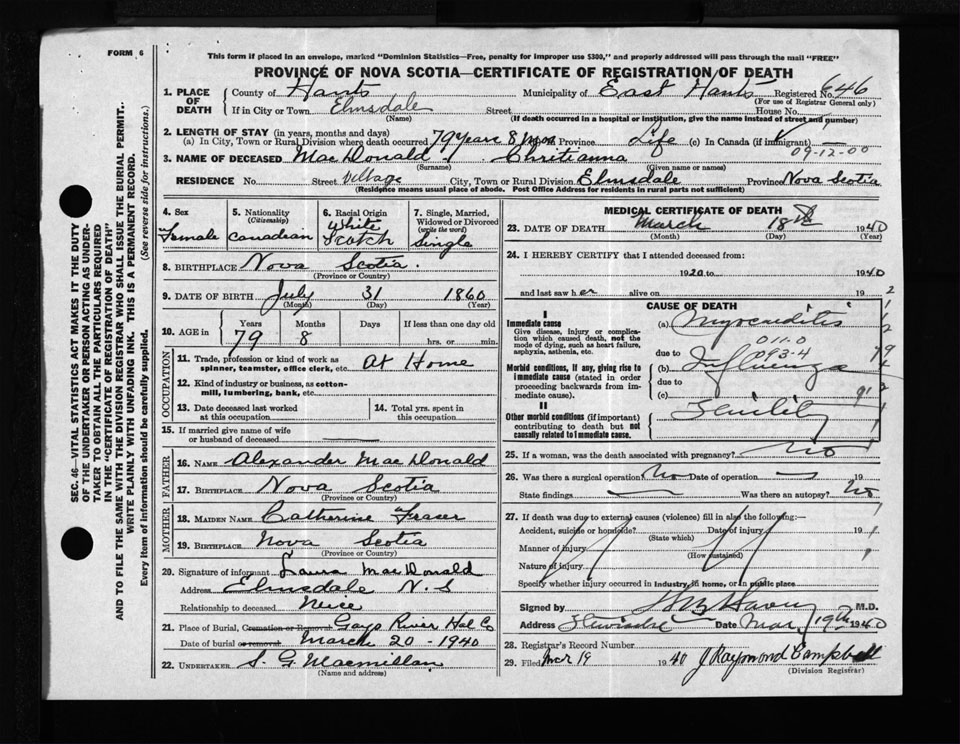 FORM 6
This form if placed in an envelope, marked "Dominion Statistics—Free, penalty for improper use $300," and properly addressed will pass through the mail "FREE"
PROVINCE OF NOVA SCOTIA—CERTIFICATE OF REGISTRATION OF DEATH
1. PLACE OF DEATH County of Hants Municipality of East Hants Registered No. 646
(For use of Registrar General only)
If in City or Town Elmsdale Street House No.
(Name) (If death occurred in a hospital or institution, give the name instead of street and number)
2. LENGTH OF STAY (in years, months and days)
(a) In City, Town or Rural Division where death occurred 79 years 8 mos Province Life (c) In Canada (if immigrant)
09-12-00
3. NAME OF DECEASED MacDonald Chritianna
(Surname) (Given name or names)
RESIDENCE No. Street Village City, Town or Rural Division Elmsdale Province Nova Scotia
(Residence means usual place of abode. Post Office Address for residents in rural parts not sufficient)
4. Sex Female
5. Nationality (Citizenship) Canadian
6. Racial Origin White Scotch
7. Single, Married, Widowed or Divorced (write the word) Single
8. BIRTHPLACE Nova Scotia.
(Province or Country)
9. DATE OF BIRTH July 31 1860
(Month) (Day) (Year)
10. AGE in Years Months Days If less than one day
79 8 hrs. or min.
OCCUPATION
11. Trade, profession or kind of work as spinner, teamster, office clerk, etc. At Home
12. Kind of industry or business, as cotton-mill, lumbering, bank, etc.
13. Date deceased last worked at this occupation
14. Total yrs. spent in this occupation
15. If married give name of wife or husband of deceased
FATHER
16. NAME Alexander MacDonald
17. BIRTHPLACE Nova Scotia
(Province or Country)
MOTHER
18. MAIDEN NAME Catherine Fraser
19. BIRTHPLACE Nova Scotia
(Province or Country)
20. Signature of informant Laura MacDonald
Address Elmsdale N.S
Relationship to deceased Neice
21. Place of Burial, Cremation or Removal Gays River Hal Co
Date of burial or removal March 20-1940
22. UNDERTAKER S. G. Macmillan
(Name and address)
MEDICAL CERTIFICATE OF DEATH
23. DATE OF DEATH March 18th 1940
(Month) (Day) (Year)
24. I HEREBY CERTIFY that I attended deceased from:
1920 to 1940
and last saw her alive on 19
CAUSE OF DEATH
I
Immediate cause
Give disease, injury or complication which caused death, not the mode of dying, such as heart failure, asphyxia, asthenia, etc.
(a) Myocarditis
011-0
due to 093-4
Morbid conditions, if any, giving rise to immediate cause (stated in order proceeding backwards from immediate cause).
(b) Influenza
due to
(c) 91
II
Other morbid conditions (if important) contributing to death but not causally related to immediate cause.
Senility
25. If a woman, was the death associated with pregnancy? No
26. Was there a surgical operation? No Date of operation 19
State findings Was there an autopsy? No
27. If death was due to external causes (violence) fill in also the following:—
Accident, suicide or homicide? Date of injury 19
(State which)
Manner of injury (How sustained)
Nature of injury
Specify whether injury occurred in industry, in home, or in public place
Signed by M.D.
Address Date Mar 19th 1940
28. Registrar's Record Number
29. Filed Mar 19 1940 J Raymond Campbell
(Division Registrar)
SEC. 46—VITAL STATISTICS ACT MAKES IT THE DUTY
OF THE UNDERTAKER OR PERSON ACTING AS UNDER-
TAKER TO OBTAIN ALL THE PARTICULARS REQUIRED
IN THE "CERTIFICATE OF REGISTRATION OF DEATH"
AND TO FILE THE SAME WITH THE DIVISION REGISTRAR WHO SHALL ISSUE THE BURIAL PERMIT.
WRITE PLAINLY WITH UNFADING INK. THIS IS A PERMANENT RECORD.
Every item of information should be carefully supplied. (See reverse side for instructions.)